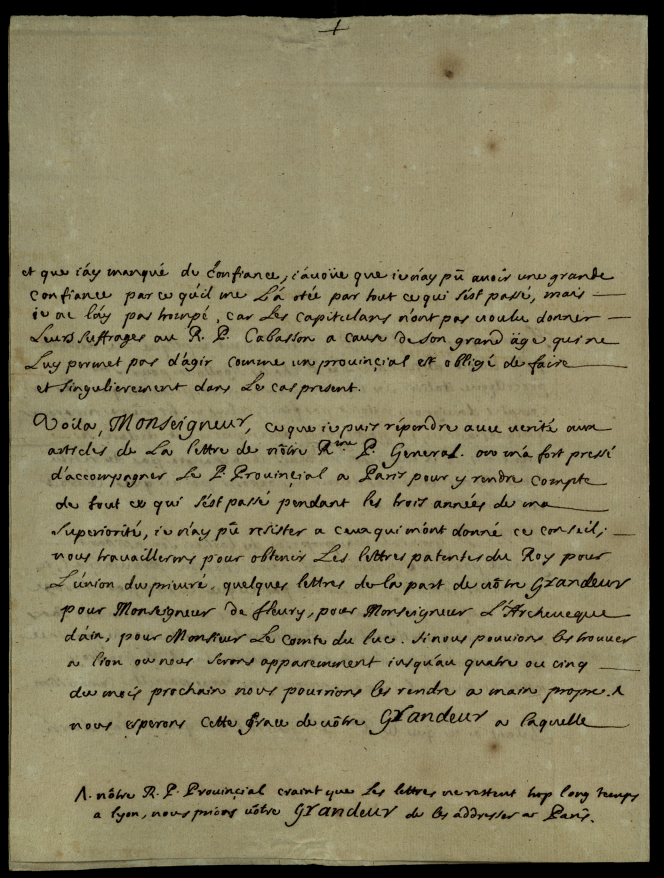 +
et que i'áy manqué de Confiance, i'auoüe que ie n'ay pû auoir une grande
confiance par ce qu'il me L'á otée par tout ce qui s'ést passé, mais
ie ne láy pas trompé, car Les Capitulans n'ont pas voulu donner
Leurs Suffrages au R. P. Cabasson a cause de son grand äge qui ne
Luy permet pas d'ágir comme un provinçial est obligé de faire
et singulierement dans Le cas present.
Voila, Monseigneur, ce que ie puis répondre auec verité aux
articles de La lettre de nôtre R.me P. General. on m'á fort pressé
d'accompagner Le P. Provinçial a Paris pour y rendre compte
de tout ce qui s'ést passé pendant les trois années de ma
superiorité, ie n'ay pû resister a ceux qui m'ont donné ce conseil;
nous travaillerons pour obtenir Les lettres patentes du Roy pour
L'únion du prieuré, quelques lettres de la part de vôtre Grandeur
pour Monseigneur de fleury, pour Monseigneur L'Archeueque
d'aix, pour Monsieur Le comte du luc. si nous pouvions les trouver
a lion ou nous serons apparemment iusqu'au quatre ou cinq
du mois prochain nous pourrions les rendre a main propre. Λ
nous esperons cette grace de vôtre Grandeur a laquelle
Λ. nôtre R. P. Provinçial craint que Les lettres ne restent trop long temps
a lyon, nous prions vôtre Grandeur de les addresser a Paris.